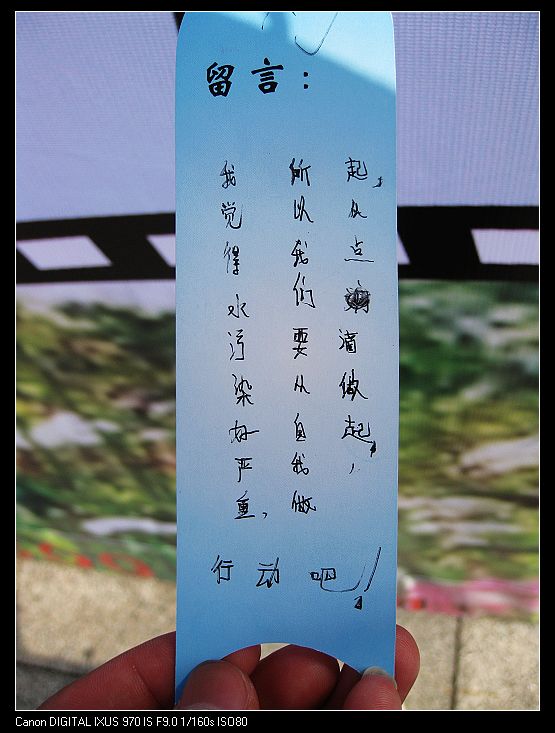 留言：
我觉得水污染好严重，
所以我们要从自我做
起，从点滴做起，
行动吧!!
Canon DIGITAL IXUS 970 IS F9.0 1/160s ISO80